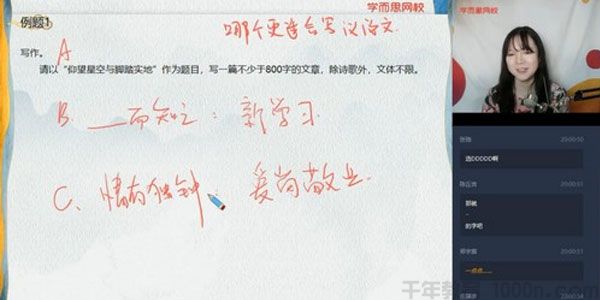 例题1
学而思网校
学而思网校
哪个更适合写议论文
写作。
A
请以“仰望星空与脚踏实地”作为题目，写一篇不少于800字的文章，除诗歌外，文体不限。
B. ___而知之：新学习.
C、情有独钟、爱岗敬业.
20:00:50
选DDDDD啊
20:00:51
那就
的字吧
20:00:51
一点点......
千年教育 1000n.com